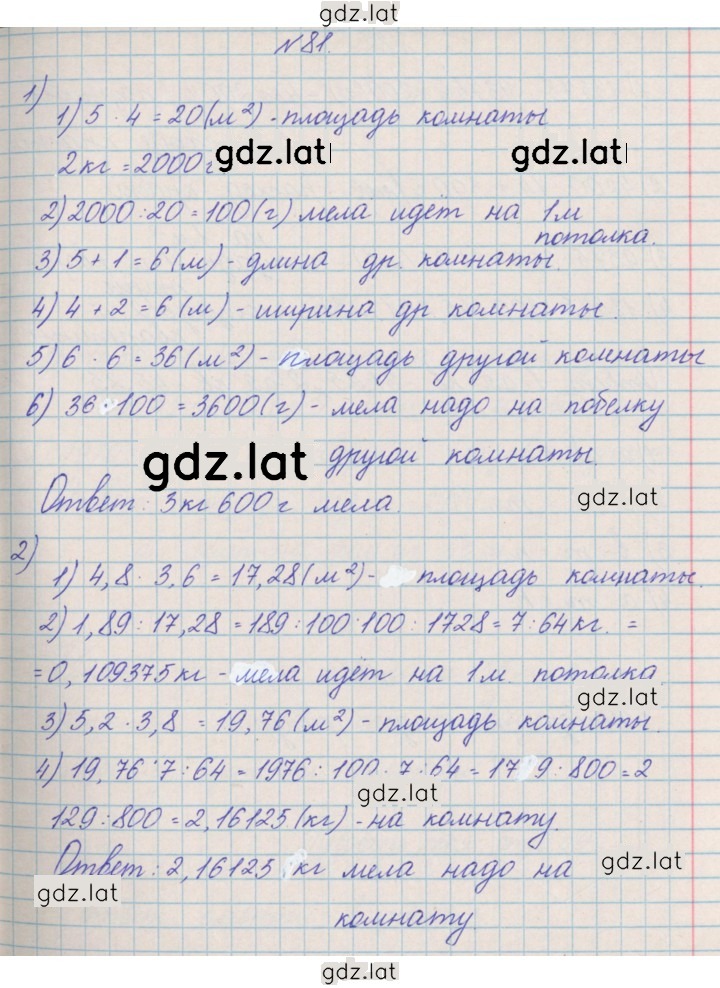 gdz.lat
№81.
1)
1) 5 · 4 = 20 (м²) - площадь комнаты
2кг = 2000 г
gdz.lat gdz.lat
2) 2000 : 20 = 100 (г) мела идёт на 1м
потолка.
3) 5 + 1 = 6 (м) - длина др. комнаты.
4) 4 + 2 = 6 (м) - ширина др комнаты.
5) 6 · 6 = 36 (м²) - площадь другой комнаты
6) 36 · 100 = 3600 (г) - мела надо на побелку
gdz.lat другой комнаты.
Ответ: 3кг 600 г мела.
gdz.lat
2)
1) 4,8 · 3,6 = 17,28 (м²) - площадь комнаты.
2) 1,89 : 17,28 = 189 : 100 · 100 : 1728 = 7 : 64 кг. =
= 0,109375 кг - мела идёт на 1м. потолка.
gdz.lat
3) 5,2 · 3,8 = 19,76 (м²) - площадь комнаты.
4) 19,76 · 7 : 64 = 1976 : 100 · 7 : 64 = 17 9 : 800 = 2
gdz.lat
129 : 800 = 2,16125 (кг) - на комнату.
Ответ: 2,16125 кг мела надо на
gdz.lat
gdz.lat
комнату.
gdz.lat